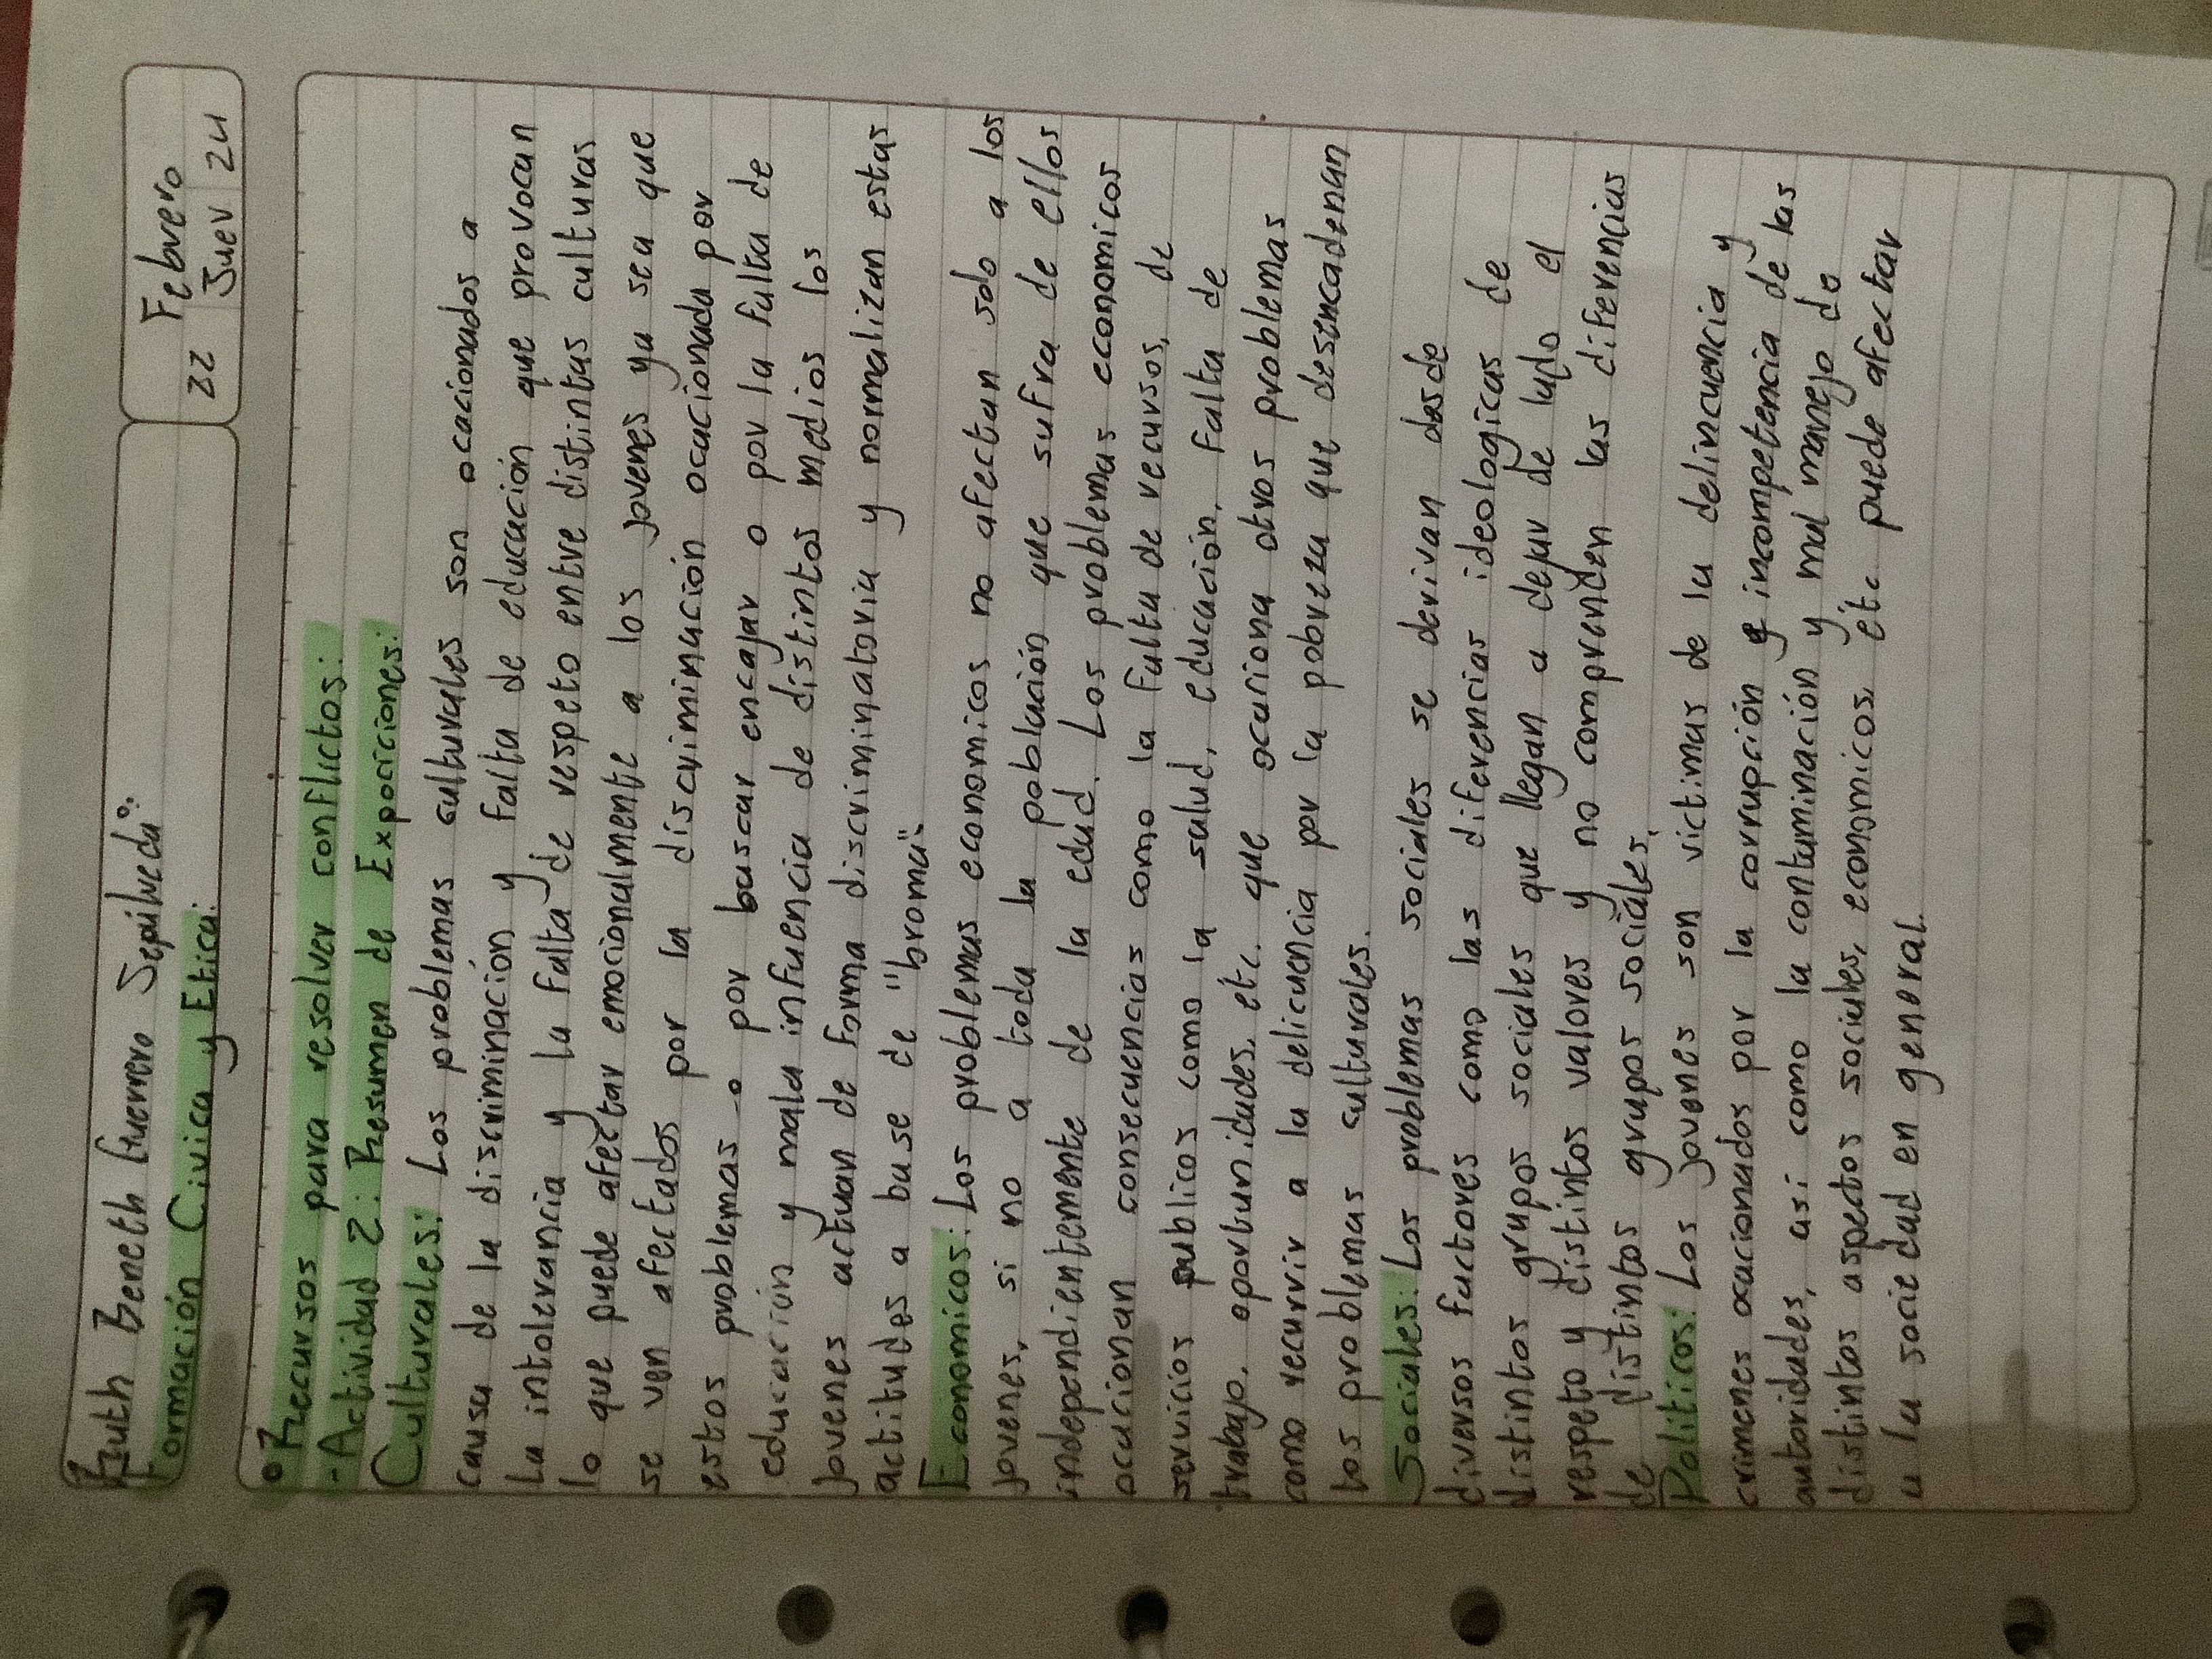 Ruth Beneth Guerrero Sepulveda°:
Formación Civica y Etica:
22 Febrero
Juev 24
° Recursos para resolver conflictos:
- Actividad 2: Resumen de Exposiciones:
Culturales: Los problemas culturales son ocacionados a
causa de la discriminación y falta de educación que provocan
la intolerancia y la falta de respeto entre distintas culturas
lo que puede afectar emocionalmente a los jovenes ya sea que
se ven afectados por la discriminación ocacionada por
estos problemas o por buscar encajar o por la falta de
educación y mala infuencia de distintos medios los
jovenes actuan de forma discriminatoria y normalizan estas
actitudes a base de "broma".
Economicos: Los problemas economicos no afectan solo a los
jovenes, si no a toda la población que sufra de ellos
independientemente de la edad. Los problemas economicos
ocacionan consecuencias como la falta de recursos, de
servicios publicos como la salud, educación, falta de
trabajo, oportunidades, etc. que ocaciona otros problemas
como recurrir a la delicuencia por la pobreza que desencadenan
los problemas culturales.
Sociales: Los problemas sociales se derivan desde
diversos factores como las diferencias ideologicas de
distintos grupos sociales que llegan a dejar de lado el
respeto y distintos valores y no comprenden las diferencias
de distintos grupos sociales.
Politicos: Los jovenes son victimas de la delincuencia y
crimenes ocacionados por la corrupción e incompetencia de las
autoridades, asi como la contaminación y mal manejo de
distintos aspectos sociales, economicos, etc puede afectar
a la sociedad en general.